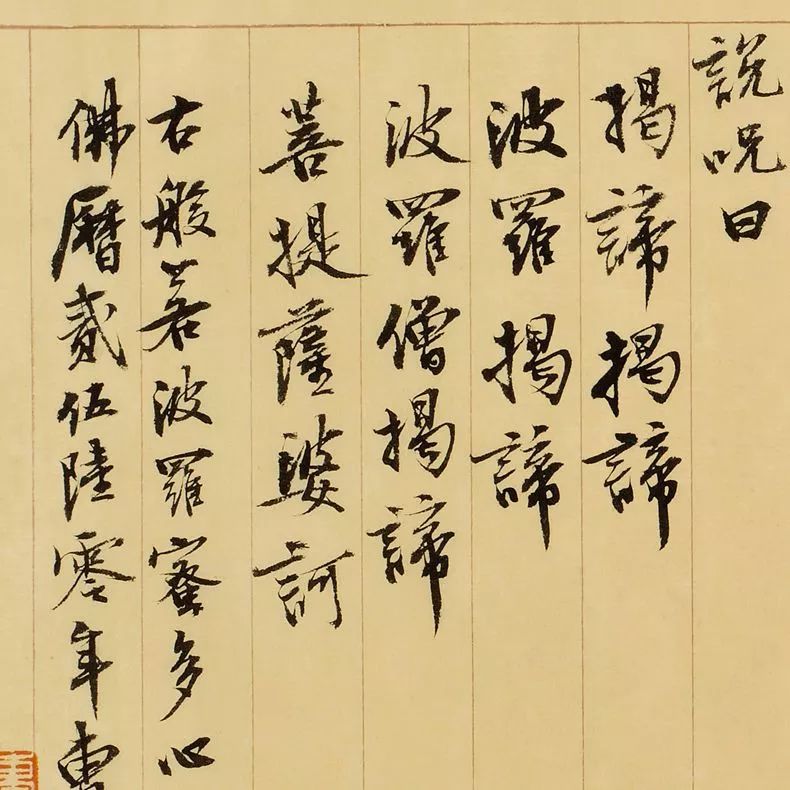 說呪曰
揭諦揭諦
波羅揭諦
波羅僧揭諦
菩提薩婆訶
右般若波羅蜜多心
佛曆貳伍陸零年